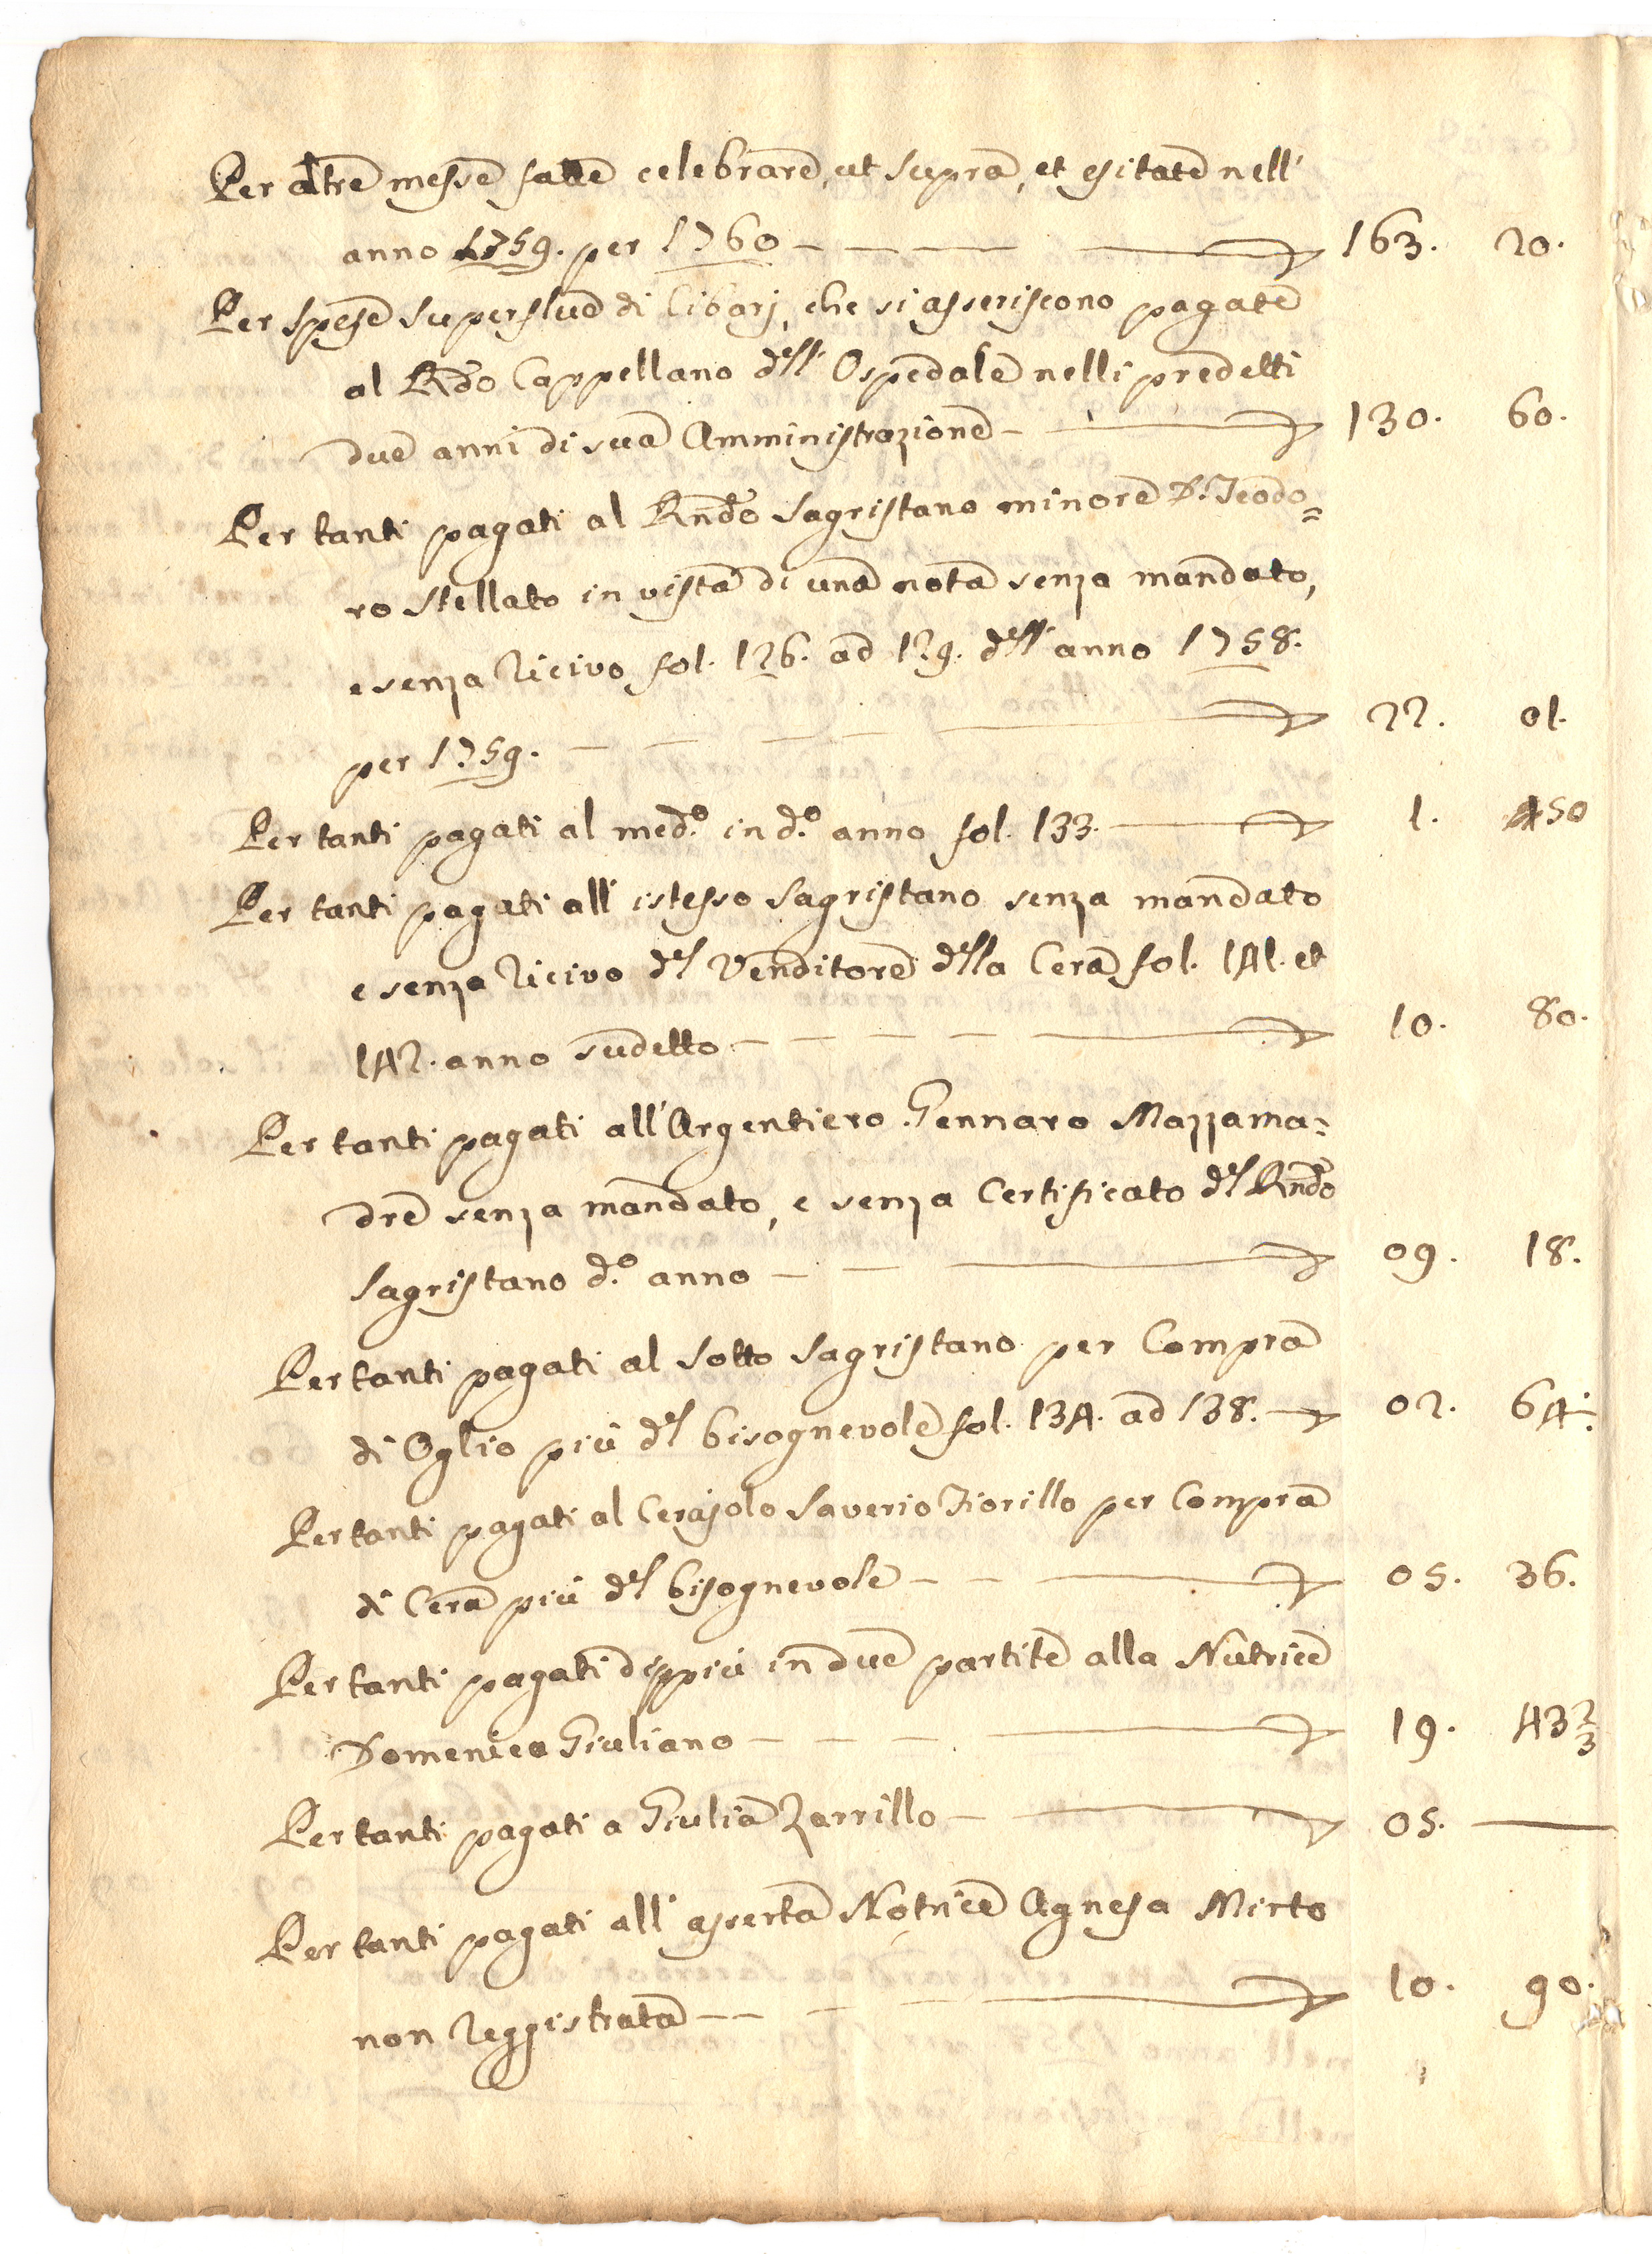 Per altre messe fatte celebrare, ut supra, et esitate nell'
anno 1759. per 1760 — — — — 163. 20.
Per spese superflue di Cibarj, che si asseriscono pagate
al Rđo Cappellano dell' Ospedale nelli predetti
due anni di sua Amministrazione — 130. 60.
Per tanti pagati al Rndo Sagristano minore D. Teodo=
ro Stellato in vista di una nota senza mandato,
e senza ricivo fol. 126. ad 129. dell' anno 1758.
per 1759. — — — — 22. 01.
Per tanti pagati al med.º in d.º anno fol. 133. — 1. 50
Per tanti pagati all' istesso Sagristano senza mandato
e senza ricivo del Venditore della Cera fol. 141. et
142. anno sudetto — — — — 10. 80.
Per tanti pagati all'Argentiero Gennaro Mazzama=
dre senza mandato, e senza Certificato del Rndo
Sagristano d.º anno — — — 09. 18.
Per tanti pagati al sotto Sagristano per Compra
di Oglio più del bisognevole fol. 134. ad 138. — 02. 64.
Per tanti pagati al Cerajolo Saverio Fiorillo per Compra
di Cera più del bisognevole — — — 05. 36.
Per tanti pagati dippiù in due partite alla Nutrice
Domenica Giuliano — — — — 19. 43 2/3
Per tanti pagati a Giulia Zarrillo — — 05. —
Per tanti pagati all' asserta Notrice Agnesa Mirto
non reggistrata — — — — 10. 90.